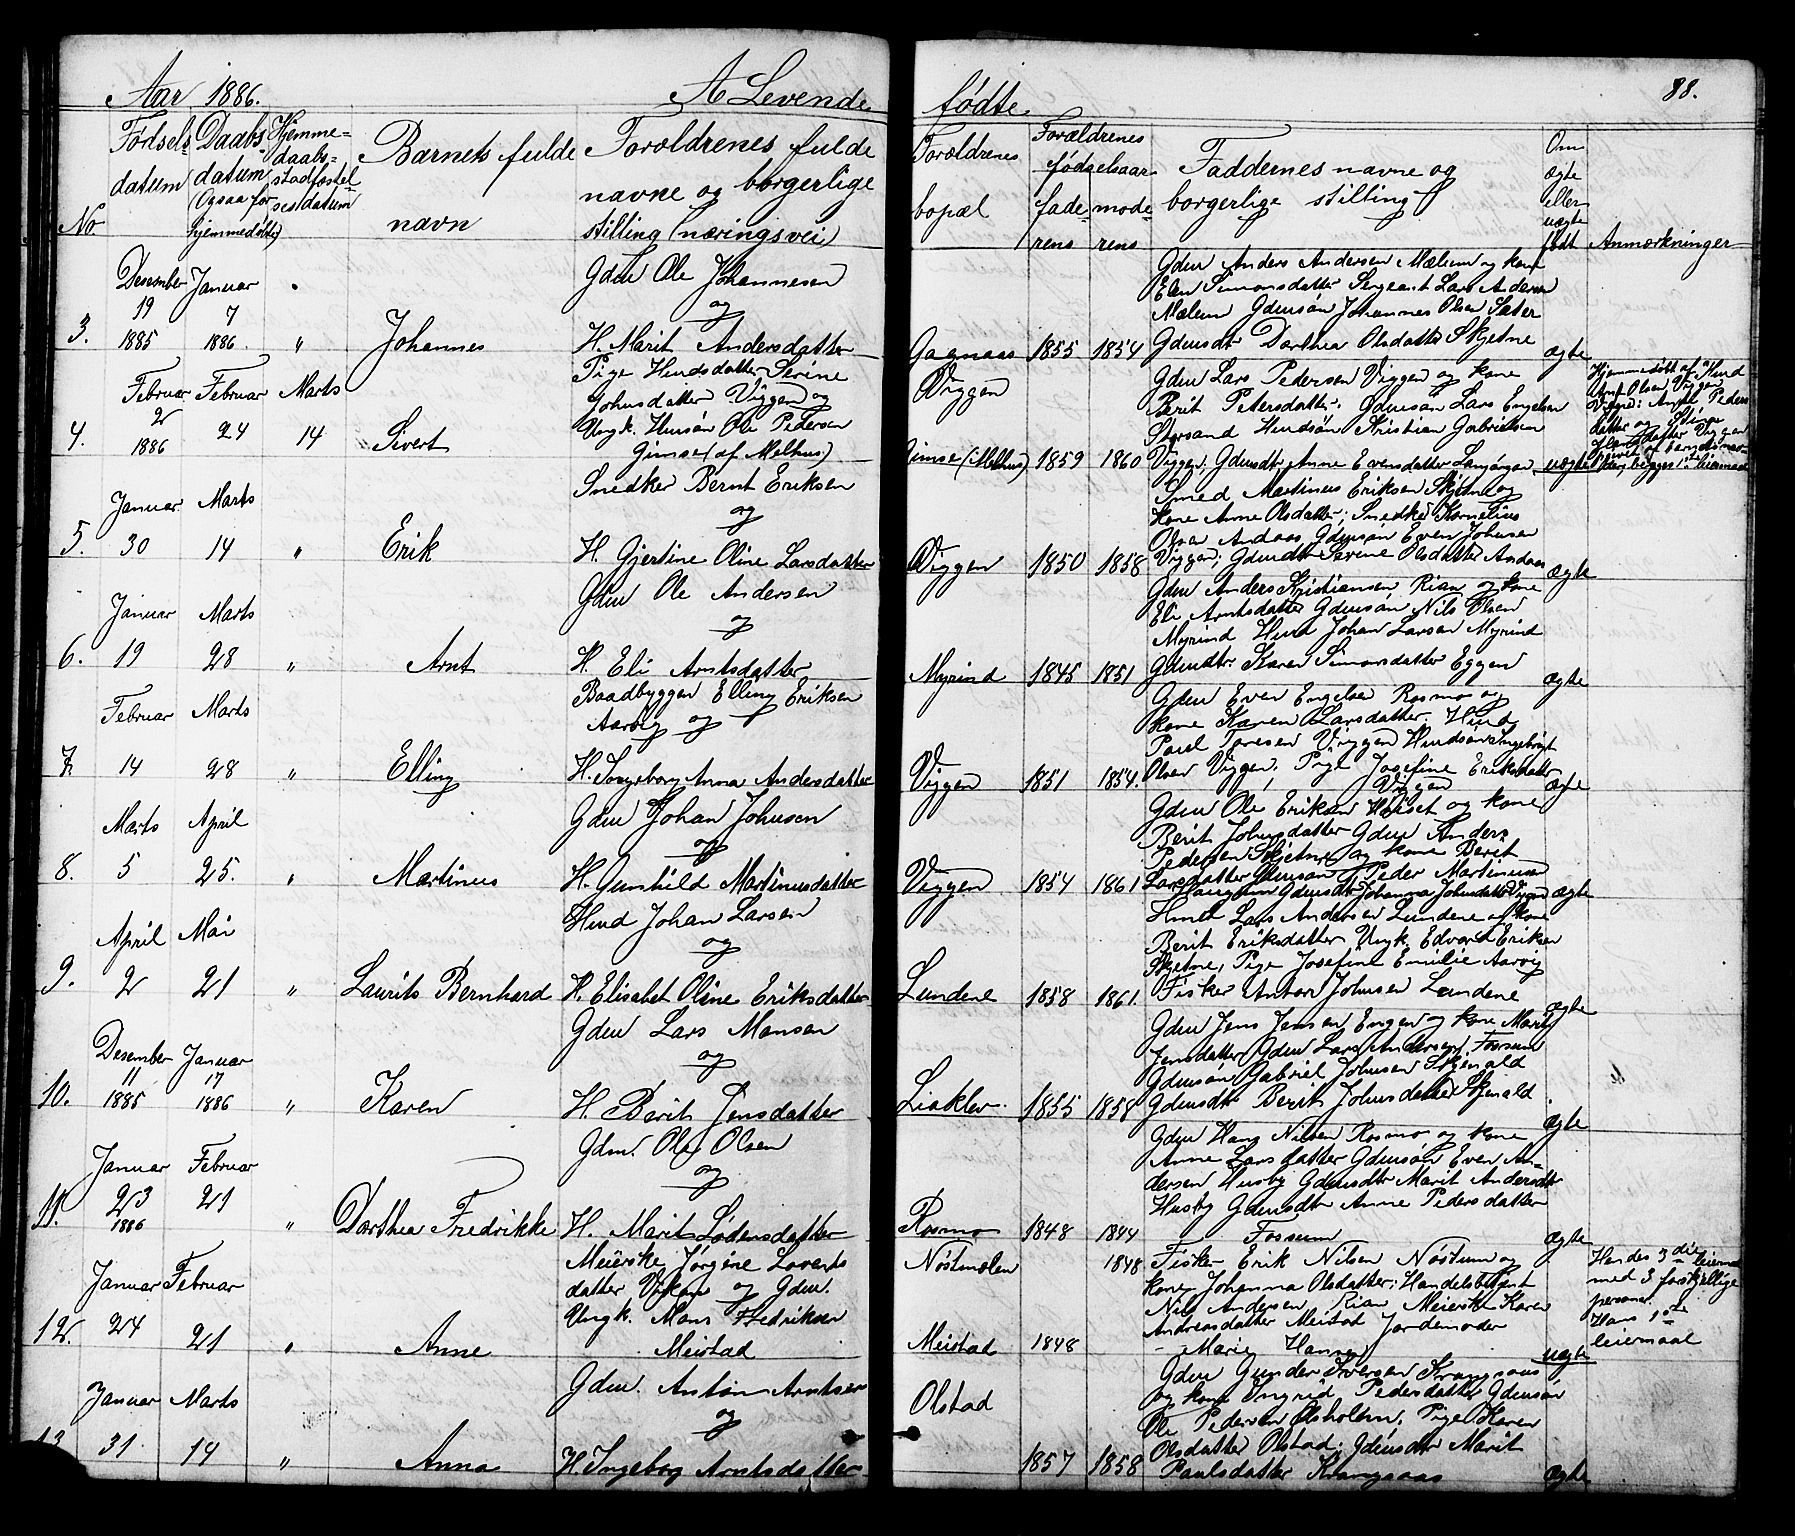 Aar 1886.
A Levende
No
Fødsels
datum
Daabs
datum
(Ogsaa for
hjemmedøbte)
Hjemme=
daabs=
stadfæstel
ses datum
Barnets fulde
navn
Forældrenes fulde
navne og borgerlige
stilling (næringsvei)
3.
Desember
19
1885
Januar
7
1886.
"
Johannes
Gdm Ole Johannesen
og
H. Marit Andersdatter
4.
Februar
2
1886
Februar
24
Marts
14
Sivert
Pige Serine
Johnsdatter Viggen og
Ungk. Ole Pedersen
Gimse (af Melhus)
5.
Januar
30
Marts
14
"
Erik
Snedker Bernt Eriksen
og
H. Gjertine Oline Larsdatter
6.
Januar
19
Marts
28
"
Arnt
Gdm Ole Andersen
og
H. Eli Arntsdatter
7.
Februar
14
Marts
28
"
Elling
Baadbygger Elling Eriksen
Aarvig og
H. Ingeborg Anna Andersdatter
8.
Marts
5
April
25.
"
Martinus
Gdm Johan Johnsen
og
H. Gunhild Martinusdatter
9.
April
2
Mai
21
"
Laurits Bernhard
Hmd Johan Larsen
og
H. Elisabet Oline Eriksdatter
10.
Desember
11
1885
Januar
17
1886
"
Karen
Gdm Lars Monsen
og
H. Berit Jensdatter
11.
Januar
23
1886
Februar
21
"
Dorthea Fredrikke
Gdm. Ole Olsen
og
H. Marit
12.
Januar
24
Februar
21
"
Anne
Meierske Jørgine
datter og Gdm.
Ungk. Mons Fredriksen
Meistad
13
Januar
31
Marts
14
"
Anna
Gdm. Anton Arntsen
og
H. Ingeborg Arntsdatter
88.
fødte
Forældrenes
bopæl
Forældrenes
fødselsaar
fade=
rens
mode=
rens
Faddernes navne og
borgerlige stilling
Om
ægte
eller
uægte
født
Anmærkninger
Gagnaas 1855 1854
Gdm Anders Andersen Mælum og kone
Elen Simonsdatter Sergeant Lars Andersen
Mælum Gdmsøn Johannes Olsen Sæter
Gdmsdtr Dorthea Olsdatter Skjetne
ægte
Viggen
Gimse (Melhus) 1859 1860
Gdm Lars Pedersen Viggen og kone
Berit Petersdatter. Gdmsøn Lars Engelsen
Storsand Hmdsøn Kristian Gabrielsen
Viggen; Gdmsdtr Anne Evensdatter
uægte
Hjemmedøbt af Hmd
Arnt Olsen Viggen
Viggen 1850 1858
Smed Martinus Eriksen Skjetne og
kone Anne Olsdatter; Snedker Kornelius
Olsen Andaas Gdmsøn Even Johnsen
Viggen; Gdmsdtr Serine Olsdatter Andaas
ægte
Myrind 1845 1851
Gdm Anders Kristiansen Rian og kone
Eli Arntsdatter Gdmsøn Nils Olsen
Myrind Hmd Johan Larsen Myrind
Gdmsdtr Karen Simonsdatter Eggen
ægte
Viggen 1851 1854.
Gdm Even Engelsen Rosmo og
kone Karen Larsdatter. Hmd
Paul Toresen Viggen Hmdsøn Ingebrigt
Olsen Viggen, Pige Josefine Eriksdatter
Viggen
ægte
Viggen 1854 1861
Gdm Ole Eriksen og kone
Berit Johnsdatter Gdm Anders
Pedersen Skjetne og kone Berit
Larsdatter Gdmsøn Peder Martinusen
Gdmsdtr Johanna Johnsdatter Viggen
ægte
Lundene 1858 1861.
Hmd Lars Andersen Lundene og kone
Berit Eriksdatter Ungk. Edvard Eriksen
Skjetne, Pige Josefine Emilie Aarvig
Fisker Anton Johnsen Lundene
ægte
Liaklev. 1855 1858
Gdm Jens Jensen Engen og kone Marit
Jensdatter Gdm Lars Andersen Fossum
Gdmsøn Gabriel Johnsen Skjenald
Gdmsdtr Berit Johnsdatter Skjenald
ægte
Rosmo 1848 1844
Gdm Hans Nilsen Rosmo og kone
Anne Larsdatter Gdmsøn Even An=
dersen Husby Gdmsdtr Marit Andersdtr
Husby Gdmsdtr Anne Pedersdatter
Fossum
ægte
Nostmælen 1848
Meistad 1848
Fisker Erik Nilsen Nostum og
kone Johanna Olsdatter; Handelsbetjent
Nils Andersen Rian Meiersk Karen
Andreasdatter Meistad Jordemoder
Marie Hansen
uægte
Hendes 3die leiermaal
med 3 forskjellige
personer.
Hans 1ste
leiermaal
Olstad
1857 1858
Gdm Gunder Iversen Krangsaas
og kone Ingrid Pedersdatter Gdmsøn
Ole Pedersen Olsholm. Pige Karen
Olsdatter Olstad; Gdmsdtr Marit
Paulsdatter Krangsaas
ægte